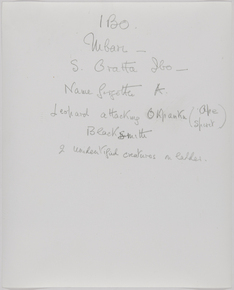 IBO.
Mbari —
S. Oratta Ibo —
Name forgotten A.
Leopard attacking Okpanku (Ape Spirit)
Blacksmith
2 unidentified creatures on ladder.